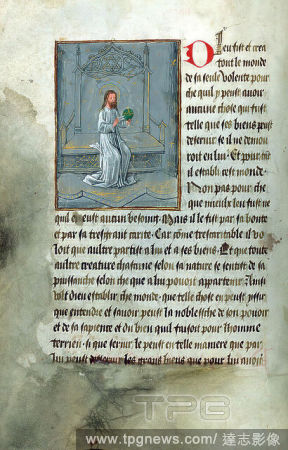 Dieu fist et crea
tout le monde
de sa seule volente pour
che quil y peust avoir
aucune chose qui fust
telle que ses biens peust
deservir se il ne demou
roit en lui Et pour ce
il establi cest monde
Non pas pour che
que mieulx leu fust ne
quil eust aucun besoing Mais il le fist par sa bonte
et par sa tresgrant carite Car come trescaritable il vo
loit que aultre partist a lui et a ses biens Et que toute
aultre creature chascune selon sa nature se sentist de sa
puissanche selon che que a lui pouoit appartenir
volt dieu establir che monde que telle chose en peust yssir
que entendre et savoir peust la noblesche de son pouoir
et de sa sapience et du bien quil faisoit pour lhomme
terrien si que servir le peust en telle maniere que par
lui peust les grans biens que pour lui avoit
TPG
www.tpgnews.com/ 達志影像